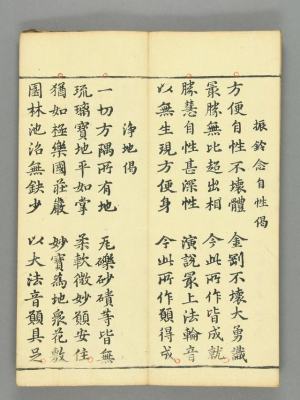 振鈴念自性偈
方便自性不壞體　金剛不壞大勇識
最勝無比超出相　今此所作皆成就
勝慧自性甚深性　演說最上法輪音
以無生現方便身　今此所作願得成
淨地偈
一切方隅所有地　瓦礫砂磧等皆無
琉璃寶地平如掌　柔軟微妙願安住
猶如極樂國莊嚴　妙寶為地眾花敷
園林池沼無缺少　以大法音願具足